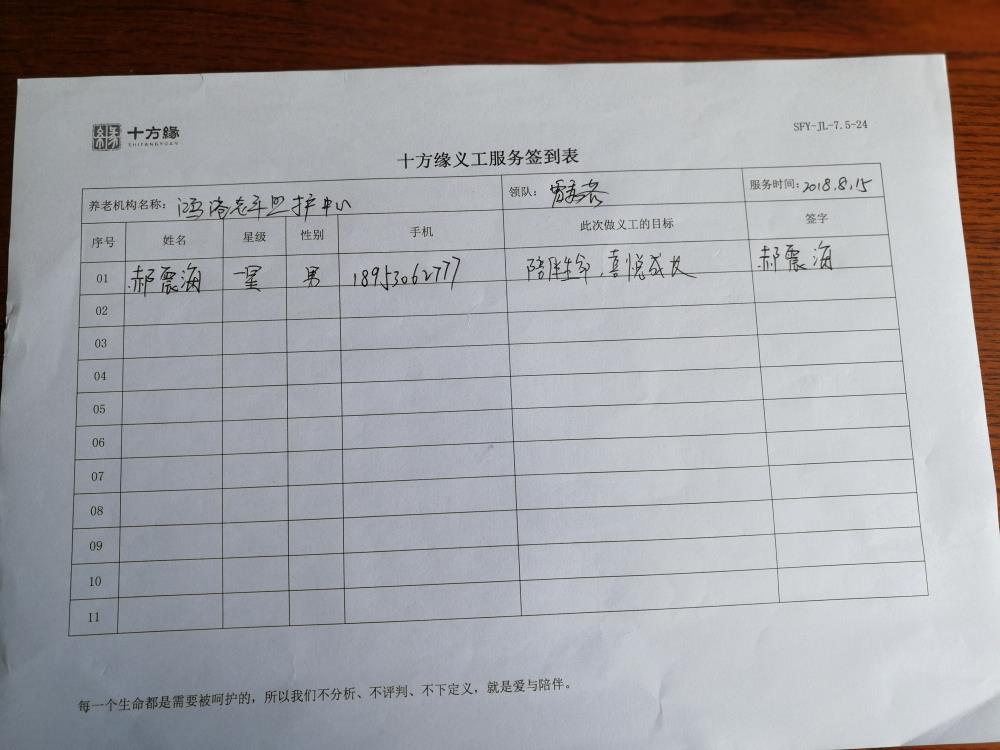 十方缘
SHIFANGYUAN
SFY-JL-7.5-24
十方缘义工服务签到表
养老机构名称: 鸿洛老年照护中心 领队: 服务时间: 2018.8.15
序号 姓名 星级 性别 手机 此次做义工的目标 签字
01 郝震海 一星 男 18953062777 陪伴生命、喜悦成长 郝震海
02
03
04
05
06
07
08
09
10
11
每一个生命都是需要被呵护的，所以我们不分析、不评判、不下定义，就是爱与陪伴。